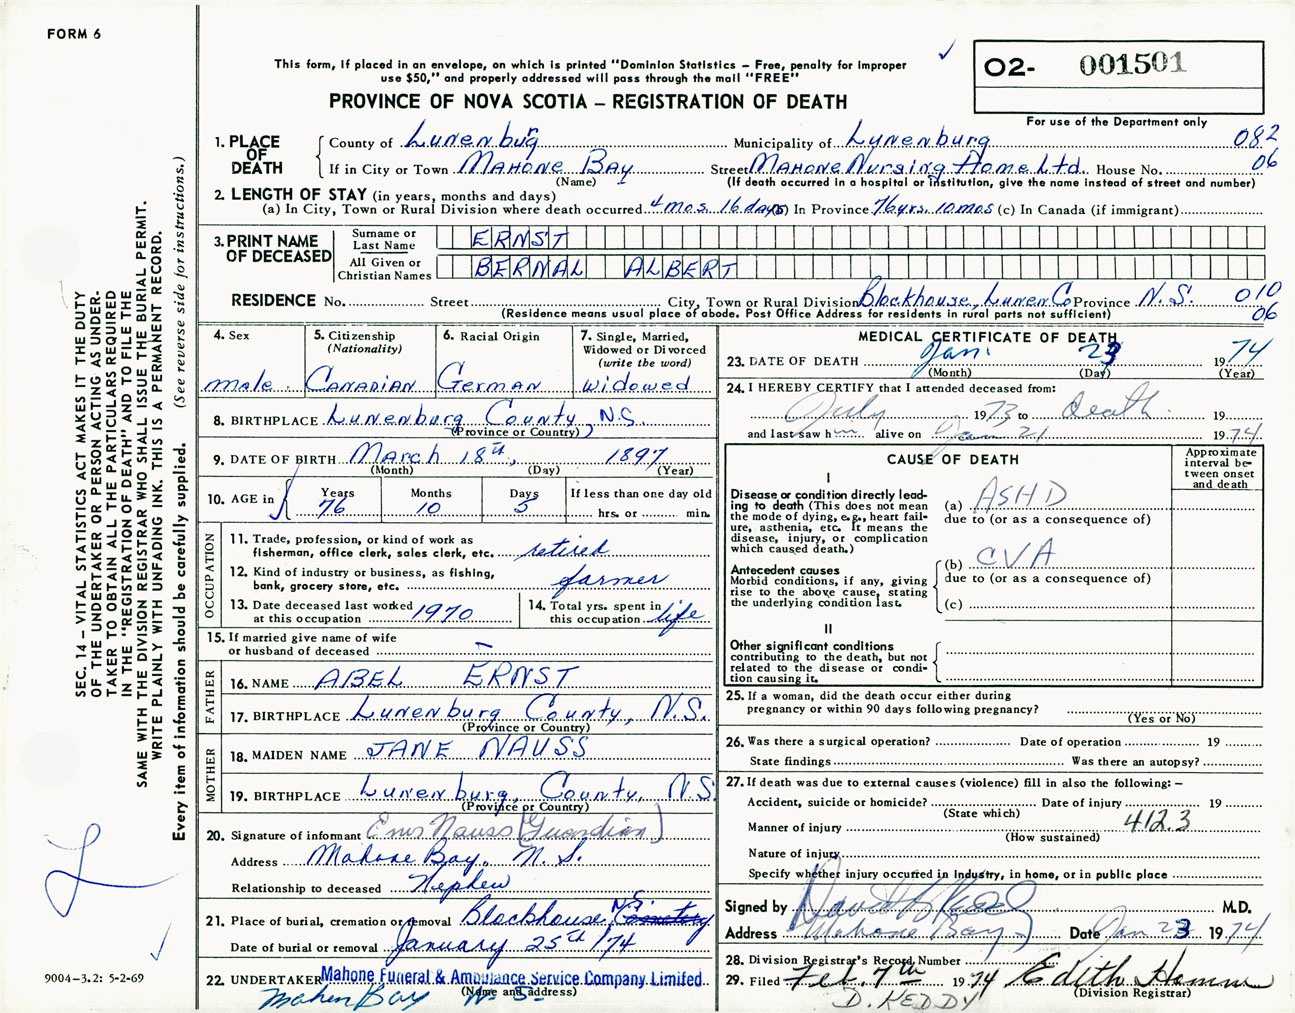 FORM 6
This form, if placed in an envelope, on which is printed "Dominion Statistics – Free, penalty for improper
use $50," and properly addressed will pass through the mail "FREE"
PROVINCE OF NOVA SCOTIA – REGISTRATION OF DEATH
O2- 001501
For use of the Department only
1. PLACE OF DEATH
County of Lunenburg Municipality of Lunenburg 082
If in City or Town MAHONE BAY Street Mahone Nursing Home Ltd. House No. 06
(Name) (If death occurred in a hospital or institution, give the name instead of street and number)
2. LENGTH OF STAY (in years, months and days)
(a) In City, Town or Rural Division where death occurred 4 mos. 16 days In Province 76 yrs. 10 mos (c) In Canada (if immigrant)
3. PRINT NAME OF DECEASED
Surname or Last Name ERNST
All Given or Christian Names BERNAL ALBERT
RESIDENCE No. Street City, Town or Rural Division Blockhouse, Lunen Co Province N.S. 010
(Residence means usual place of abode. Post Office Address for residents in rural parts not sufficient) 06
4. Sex
male
5. Citizenship
(Nationality)
CANADIAN
6. Racial Origin
GERMAN
7. Single, Married,
Widowed or Divorced
(write the word)
widowed
8. BIRTHPLACE Lunenburg County, N.S.
(Province or Country)
9. DATE OF BIRTH March 18th, 1897
(Month) (Day) (Year)
10. AGE in Years Months Days If less than one day old
76 10 5 hrs. or min.
OCCUPATION
11. Trade, profession, or kind of work as
fisherman, office clerk, sales clerk, etc. retired
12. Kind of industry or business, as fishing,
bank, grocery store, etc. farmer
13. Date deceased last worked
at this occupation 1970
14. Total yrs. spent in
this occupation life
15. If married give name of wife
or husband of deceased –
FATHER
16. NAME ABEL ERNST
17. BIRTHPLACE Lunenburg County, N.S.
(Province or Country)
MOTHER
18. MAIDEN NAME JANE NAUSS
19. BIRTHPLACE Lunenburg County, N.S.
(Province or Country)
20. Signature of informant Nauss (Guardian)
Address Mahone Bay, N.S.
Relationship to deceased Nephew
21. Place of burial, cremation or removal Blockhouse N.S. Cemetery
Date of burial or removal January 25th /74
22. UNDERTAKER Mahone Funeral & Ambulance Service Company Limited.
(Name and address)
Mahon Bay N. S.
MEDICAL CERTIFICATE OF DEATH
23. DATE OF DEATH Jan. 23 1974
(Month) (Day) (Year)
24. I HEREBY CERTIFY that I attended deceased from:
July 1973 to death 19
and last saw him alive on Jan 21 1974
CAUSE OF DEATH
Approximate
interval be-
tween onset
and death
I
Disease or condition directly lead-
ing to death (This does not mean
the mode of dying, e.g., heart fail-
ure, asthenia, etc. It means the
disease, injury, or complication
which caused death.)
(a) ASHD
due to (or as a consequence of)
Antecedent causes
Morbid conditions, if any, giving
rise to the above cause, stating
the underlying condition last.
(b) CVA
due to (or as a consequence of)
(c)
II
Other significant conditions
contributing to the death, but not
related to the disease or condi-
tion causing it.
25. If a woman, did the death occur either during
pregnancy or within 90 days following pregnancy?
(Yes or No)
26. Was there a surgical operation? Date of operation 19
State findings Was there an autopsy?
27. If death was due to external causes (violence) fill in also the following: –
Accident, suicide or homicide? Date of injury 19
(State which)
Manner of injury 412.3
(How sustained)
Nature of injury
Specify whether injury occurred in Industry, in home, or in public place
Signed by David M.D.
Address Mahone Bay Date Jan 23 1974
28. Division Registrar's Record Number
29. Filed Feb. 7th 1974 Edith
(Division Registrar)
D. KEDDY
SEC. 14 – VITAL STATISTICS ACT MAKES IT THE DUTY
OF THE UNDERTAKER OR PERSON ACTING AS UNDER-
TAKER TO OBTAIN ALL THE PARTICULARS REQUIRED
IN THE "REGISTRATION OF DEATH" AND TO FILE THE
SAME WITH THE DIVISION REGISTRAR WHO SHALL ISSUE THE BURIAL PERMIT.
WRITE PLAINLY WITH UNFADING INK. THIS IS A PERMANENT RECORD.
Every item of information should be carefully supplied. (See reverse side for instructions.)
9004–3.2: 5-2-69